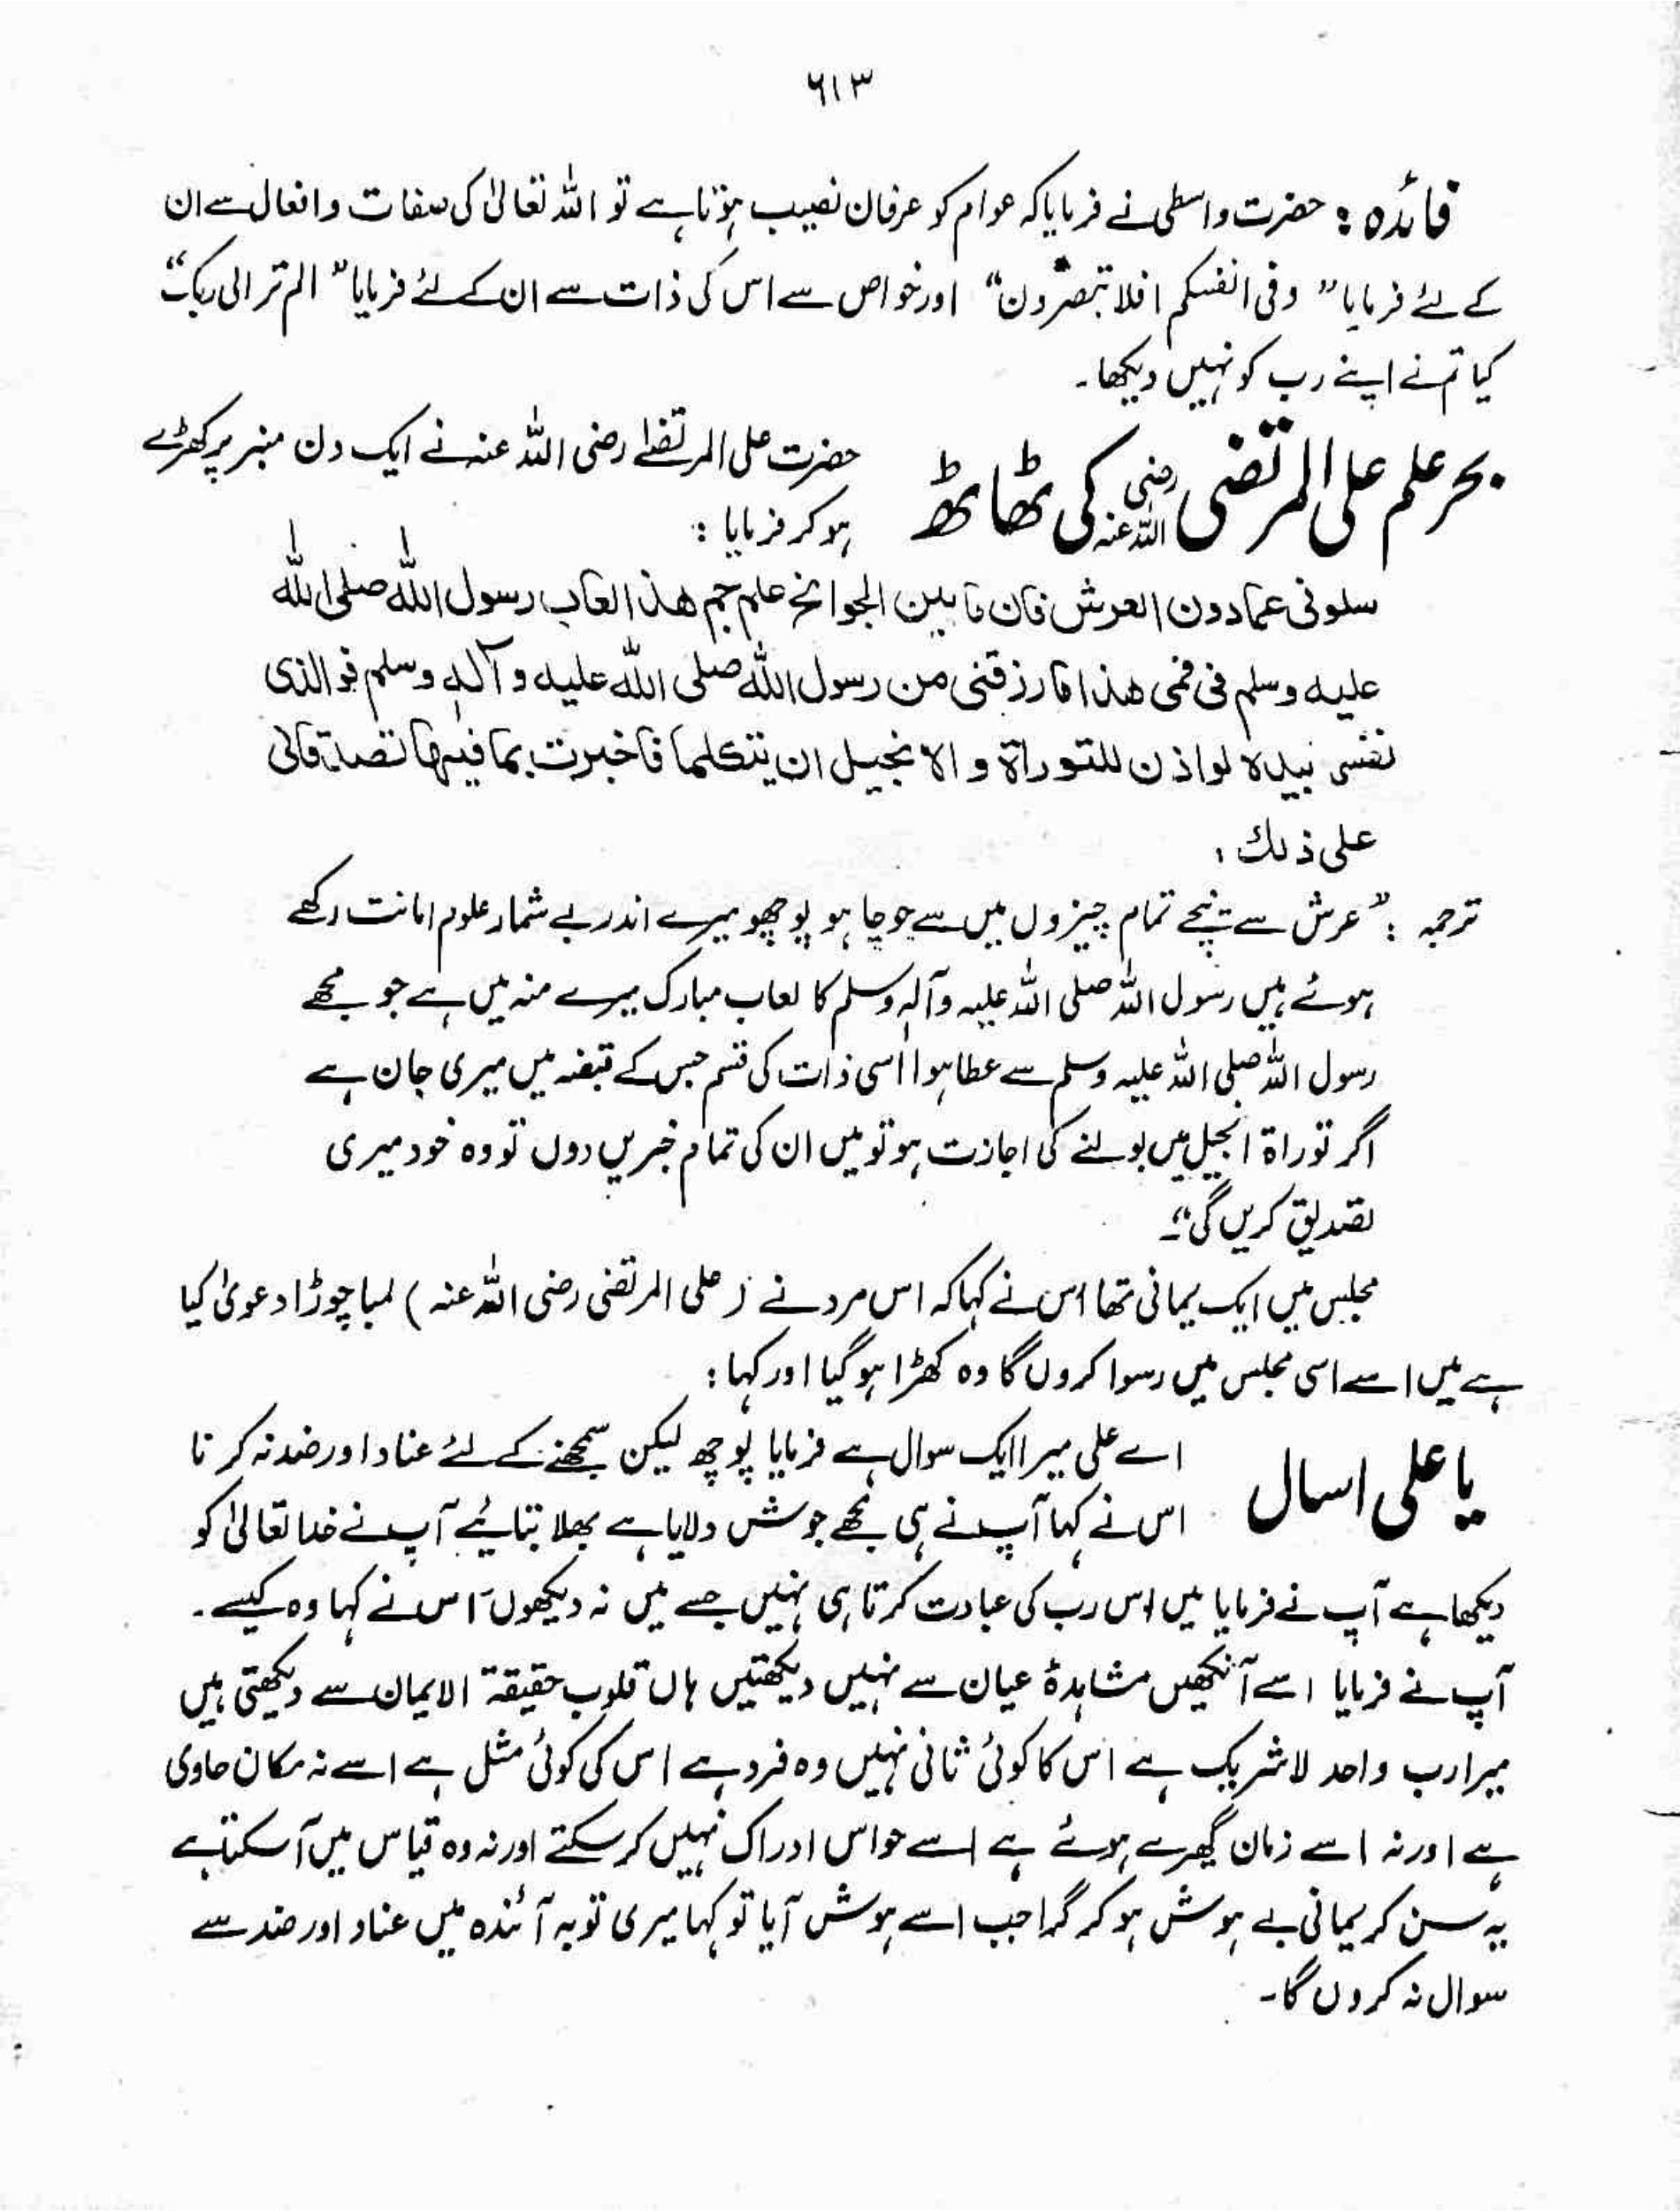 ۶۱۳
فائدہ : حضرت واسطی نے فرمایا کہ عوام کو عرفان نصیب ہوتا ہے تو اللہ تعالیٰ کی صفات و افعال سے ان
کے لئے فرمایا ” وفی انفسکم افلا تبصرون “ اور خواص سے اس کی ذات سے ان کے لئے فرمایا ” الم تر الی ربک “
کیا تم نے اپنے رب کو نہیں دیکھا ۔
بحر علم علی المرتضی رضی اللہ عنہ کی ٹھاٹھ
حضرت علی المرتضےٰ رضی اللہ عنہ نے ایک دن منبر پر کھڑے
ہو کر فرمایا :
سلونی عما دون العرش فان ما بین الجوانح علم جم ھذا لعاب رسول اللہ صلی اللہ
علیہ وسلم فی فمی ھذا ما رزقنی من رسول اللہ صلی اللہ علیہ و آلہ وسلم فو الذی
نفسی بیدہ لو اذن للتوراۃ و الانجیل ان یتکلما فاخبرت بما فیہما لصدقانی
علی ذلك ،
ترجمہ : ” عرش سے نیچے تمام چیزوں میں سے جو چاہو پوچھو میرے اندر بے شمار علوم امانت رکھے
ہوئے ہیں رسول اللہ صلی اللہ علیہ وآلہ وسلم کا لعاب مبارک میرے منہ میں ہے جو مجھے
رسول اللہ صلی اللہ علیہ وسلم سے عطا ہوا اسی ذات کی قسم جس کے قبضہ میں میری جان ہے
اگر توراۃ انجیل میں بولنے کی اجازت ہو تو میں ان کی تمام خبریں دوں تو وہ خود میری
تصدیق کریں گی “۔
مجلس میں ایک یمانی تھا اس نے کہا کہ اس مرد نے ( علی المرتضی رضی اللہ عنہ ) لمبا چوڑا دعویٰ کیا
ہے میں اسے اسی مجلس میں رسوا کروں گا وہ کھڑا ہو گیا اور کہا :
یا علی اسال
اے علی میرا ایک سوال ہے فرمایا پوچھ لیکن سمجھنے کے لئے عناد اور ضد نہ کرنا
اس نے کہا آپ نے ہی مجھے جوش دلایا ہے بھلا بتائیے آپ نے خدا تعالیٰ کو
دیکھا ہے آپ نے فرمایا میں اس رب کی عبادت کرتا ہی نہیں جسے میں نہ دیکھوں اس نے کہا وہ کیسے ۔
آپ نے فرمایا اسے آنکھیں مشاہدۂ عیان سے نہیں دیکھتیں ہاں قلوب حقیقۃ الایمان سے دیکھتی ہیں
میرا رب واحد لاشریک ہے اس کا کوئی ثانی نہیں وہ فرد ہے اس کی کوئی مثل ہے اسے نہ مکان حاوی
ہے اور نہ اسے زمان گھیرے ہوئے ہے اسے حواس ادراک نہیں کر سکتے اور نہ وہ قیاس میں آ سکتا ہے
یہ سن کر یمانی بے ہوش ہو کر گرا جب اسے ہوش آیا تو کہا میری توبہ آئندہ میں عناد اور ضد سے
سوال نہ کروں گا ۔